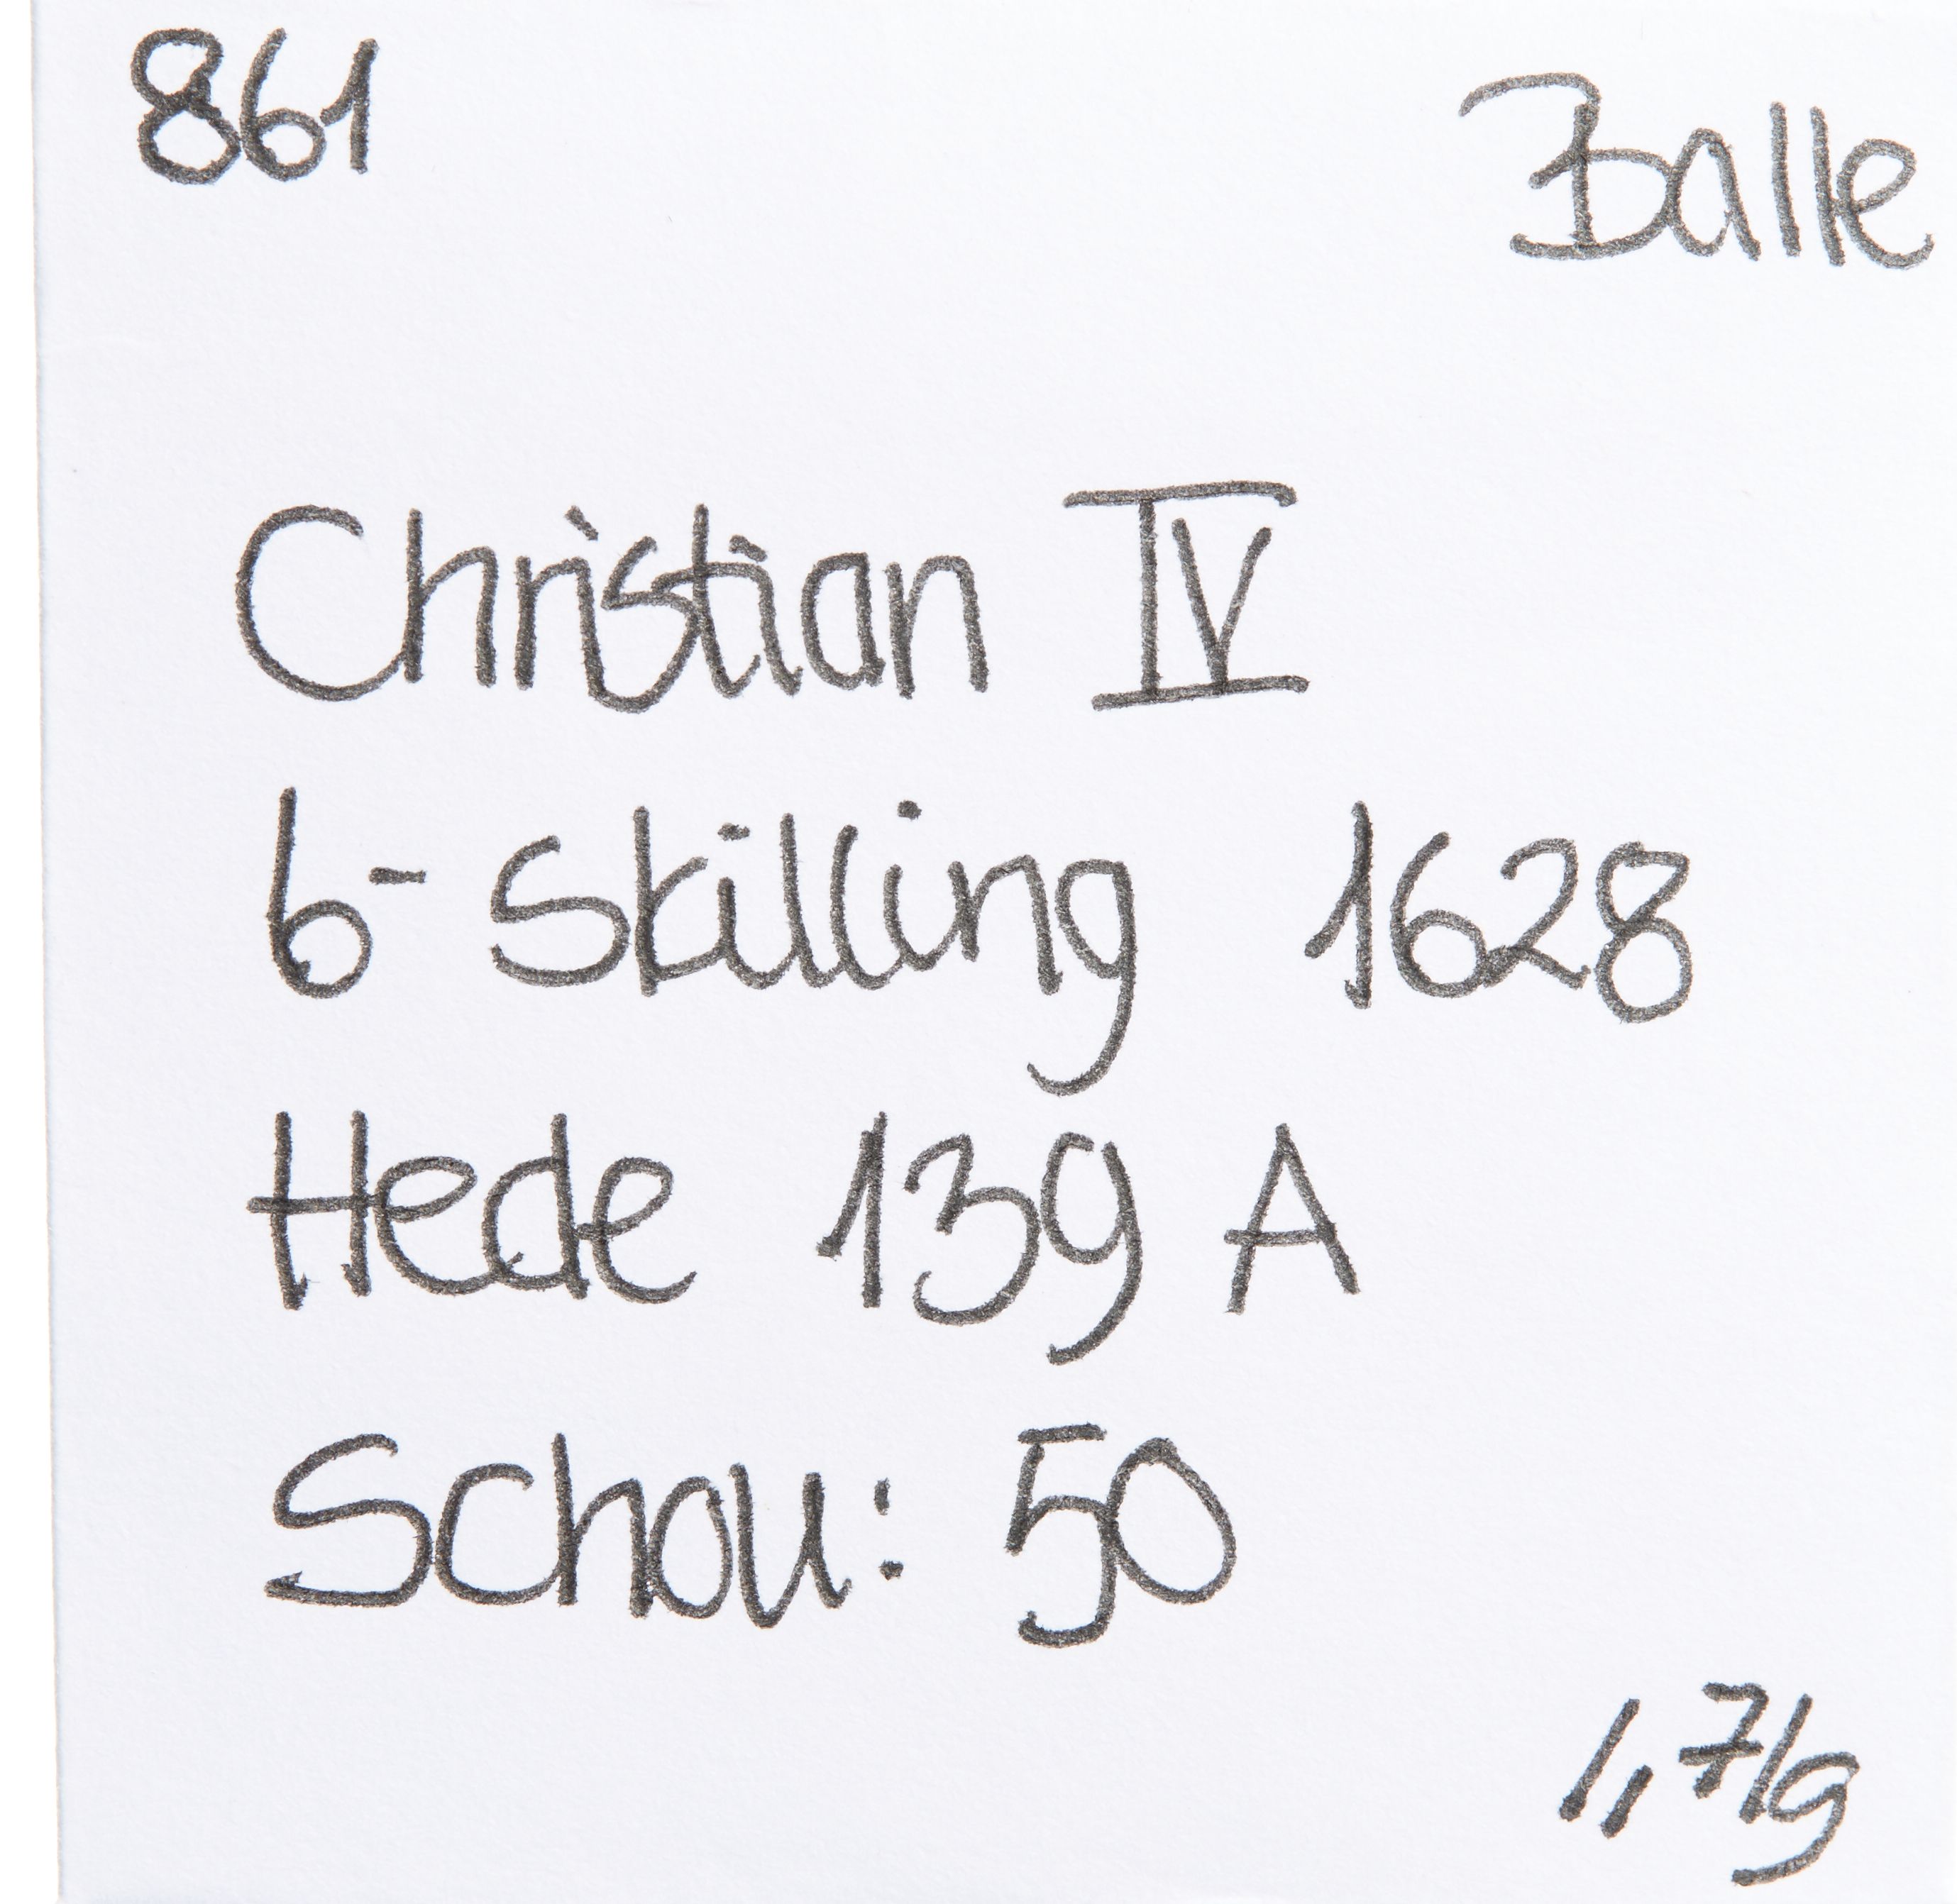 861
Balle
Christian IV
6-Skilling 1628
Hede 139 A
Schou: 50
1,71g